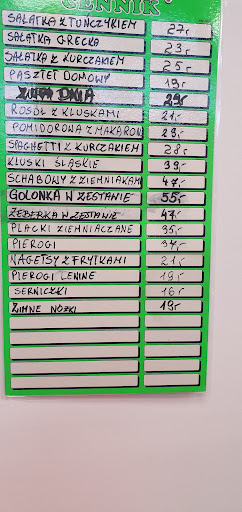 CENNIK
SAŁATKA Z TUŃCZYKIEM 27,-
SAŁATKA GRECKA 23,-
SAŁATKA Z KURCZAKIEM 25,-
PASZTET DOMOWY 19,-
ZUPA DNIA 29,-
ROSÓŁ Z KLUSKAMI 21,-
POMIDOROWA Z MAKARON 23,-
SPAGHETTI Z KURCZAKIEM 28,-
KLUSKI ŚLĄSKIE 39,-
SCHABOWY Z ZIEMNIAKAMI 47,-
GOLONKA W ZESTAWIE 55,-
ŻEBERKA W ZESTAWIE 47,-
PLACKI ZIEMNIACZANE 35,-
PIEROGI 37,-
NAGETSY Z FRYTKAMI 21,-
PIEROGI LENINE 19,-
SERNICZKI 16,-
ZIMNE NÓŻKI 19,-